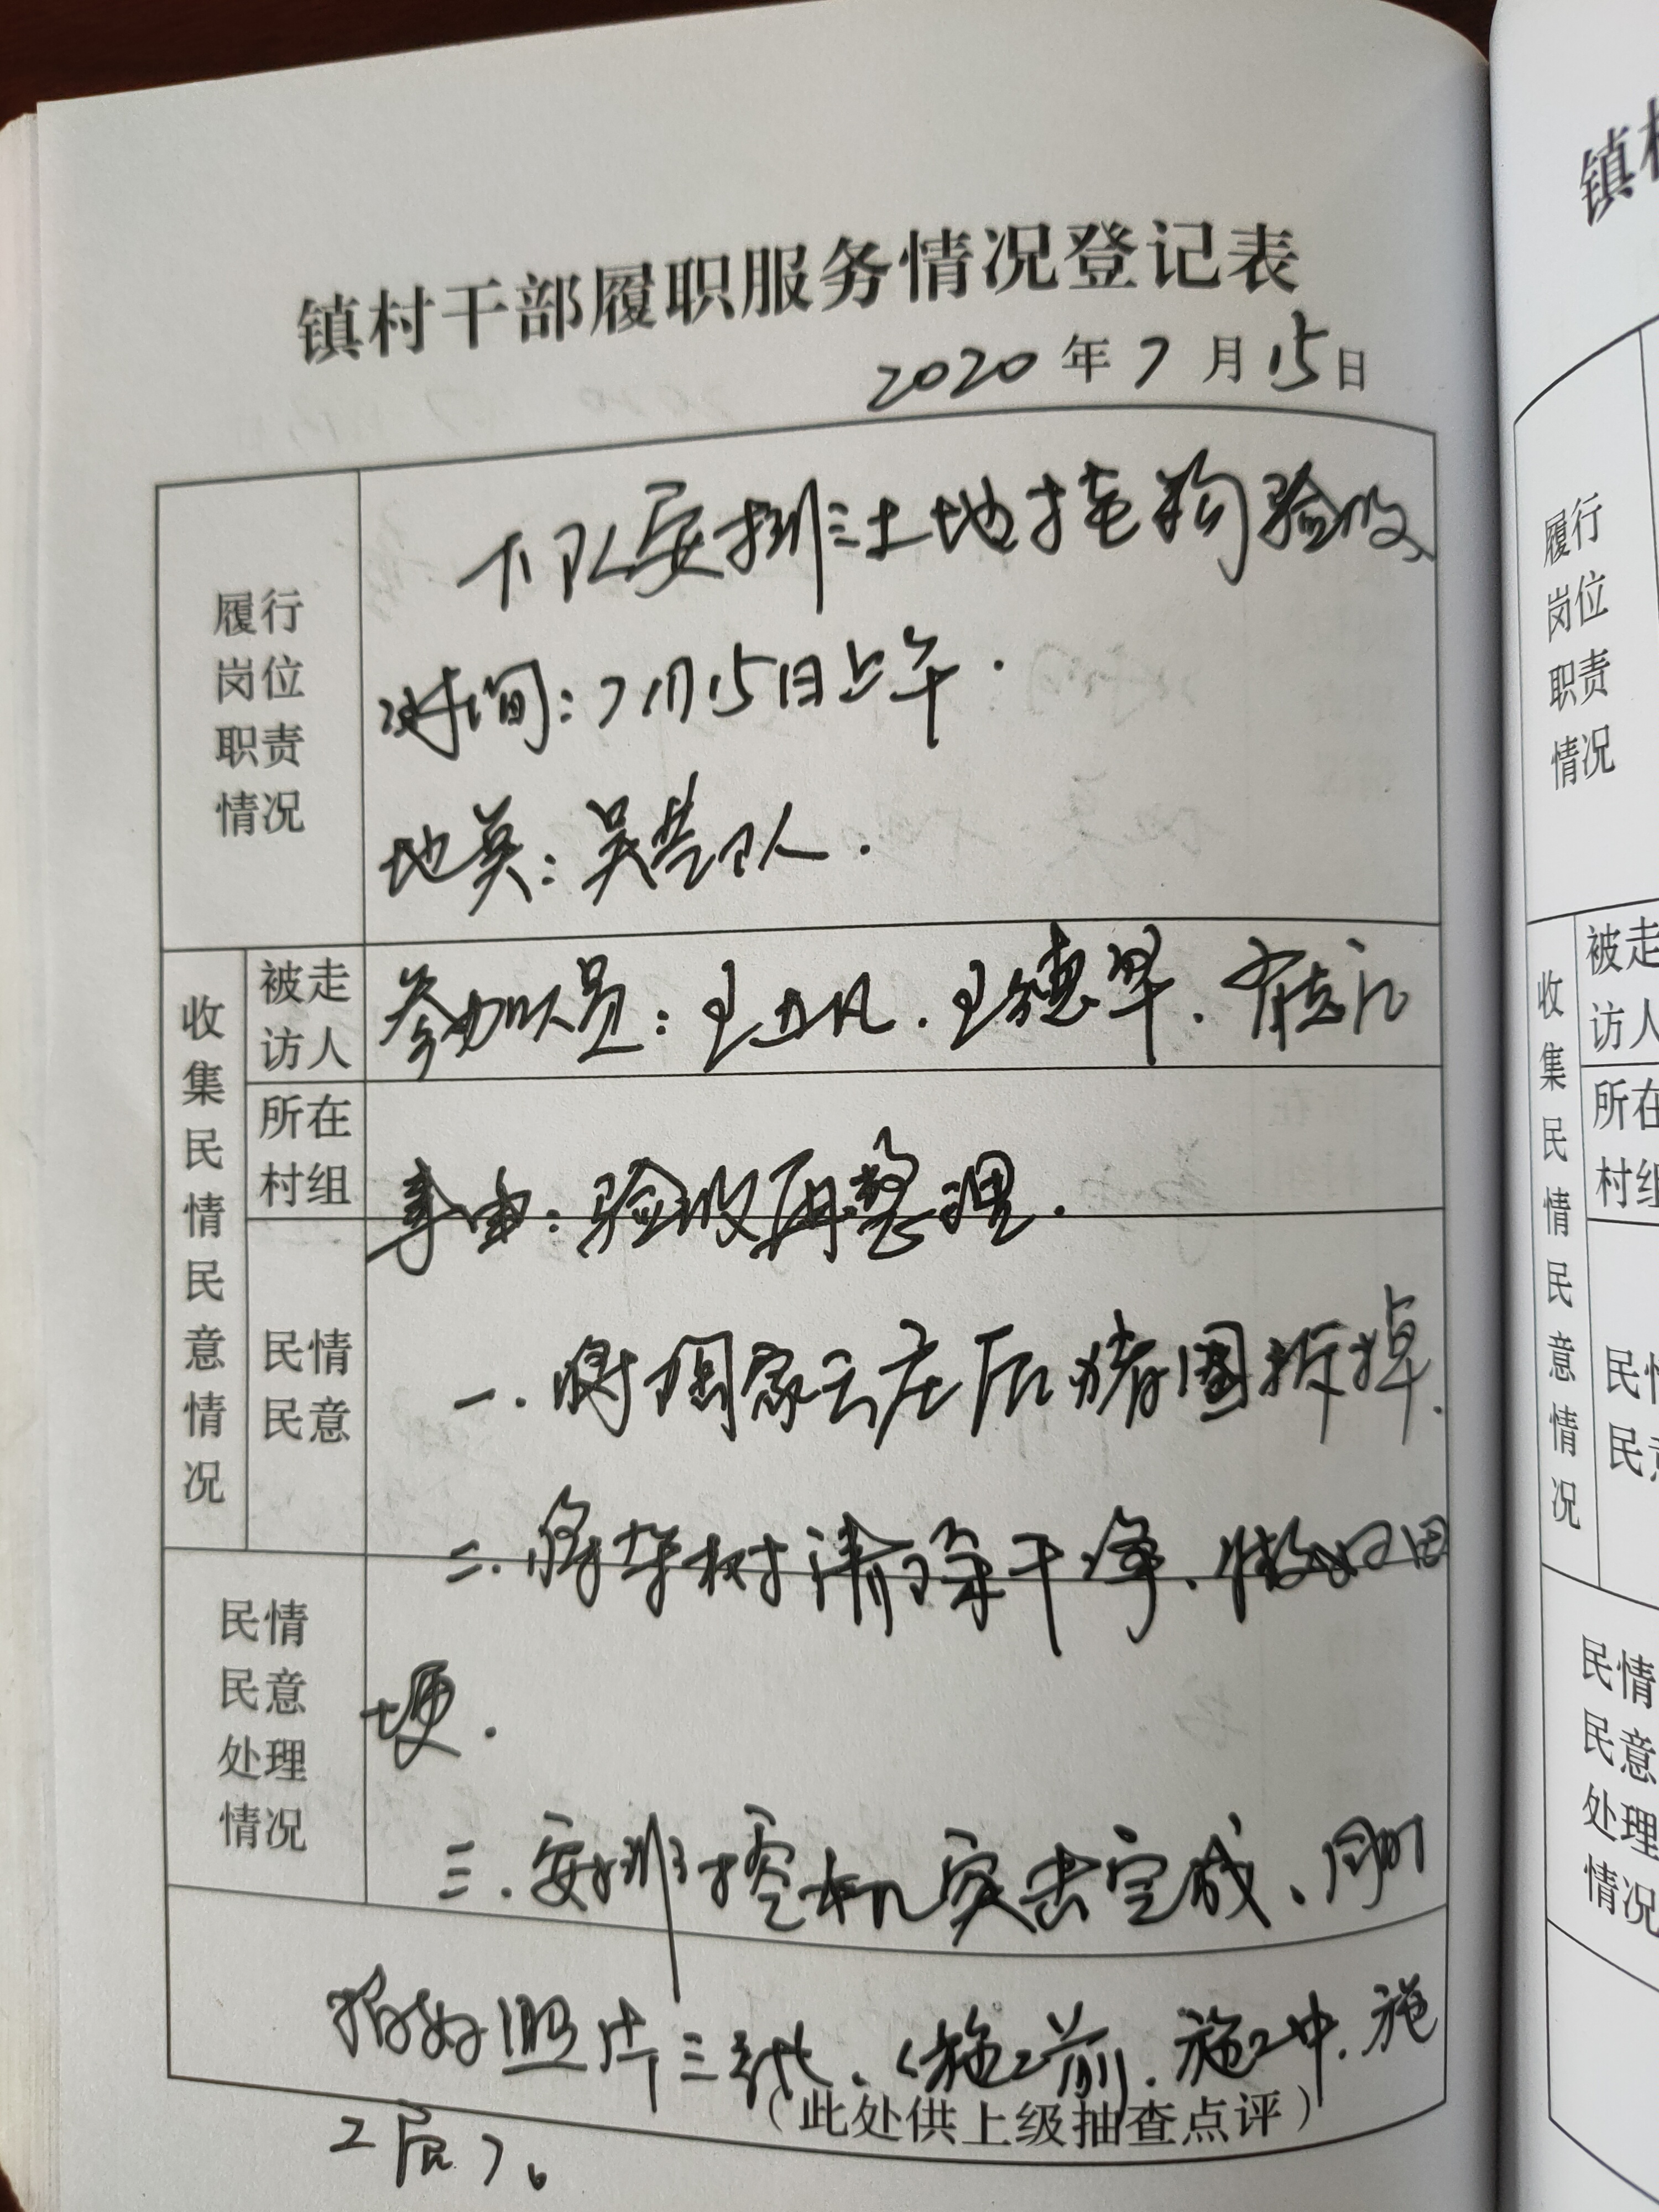 镇村干部履职服务情况登记表
2020年7月15日
履行
岗位
职责
情况
下队安排土地验收
时间:7月15日上午.
地点:吴队.
收集民情民意情况
被走
访人
参加人员:王.王德.
所在
村组
事由:验收再整理.
民情
民意
一.将周家云庄后猪圈拆掉.
二.将杂树清除干净、做好田
民情
民意
处理
情况
埂.
三.安排挖机突击完成、同时
拍好照片三张、(施工前.施工中.施
工后)。
(此处供上级抽查点评)
镇村
履行
岗位
职责
情况
收集民情民意情况
被走
访人
所在
村组
民情
民意
民情
民意
处理
情况